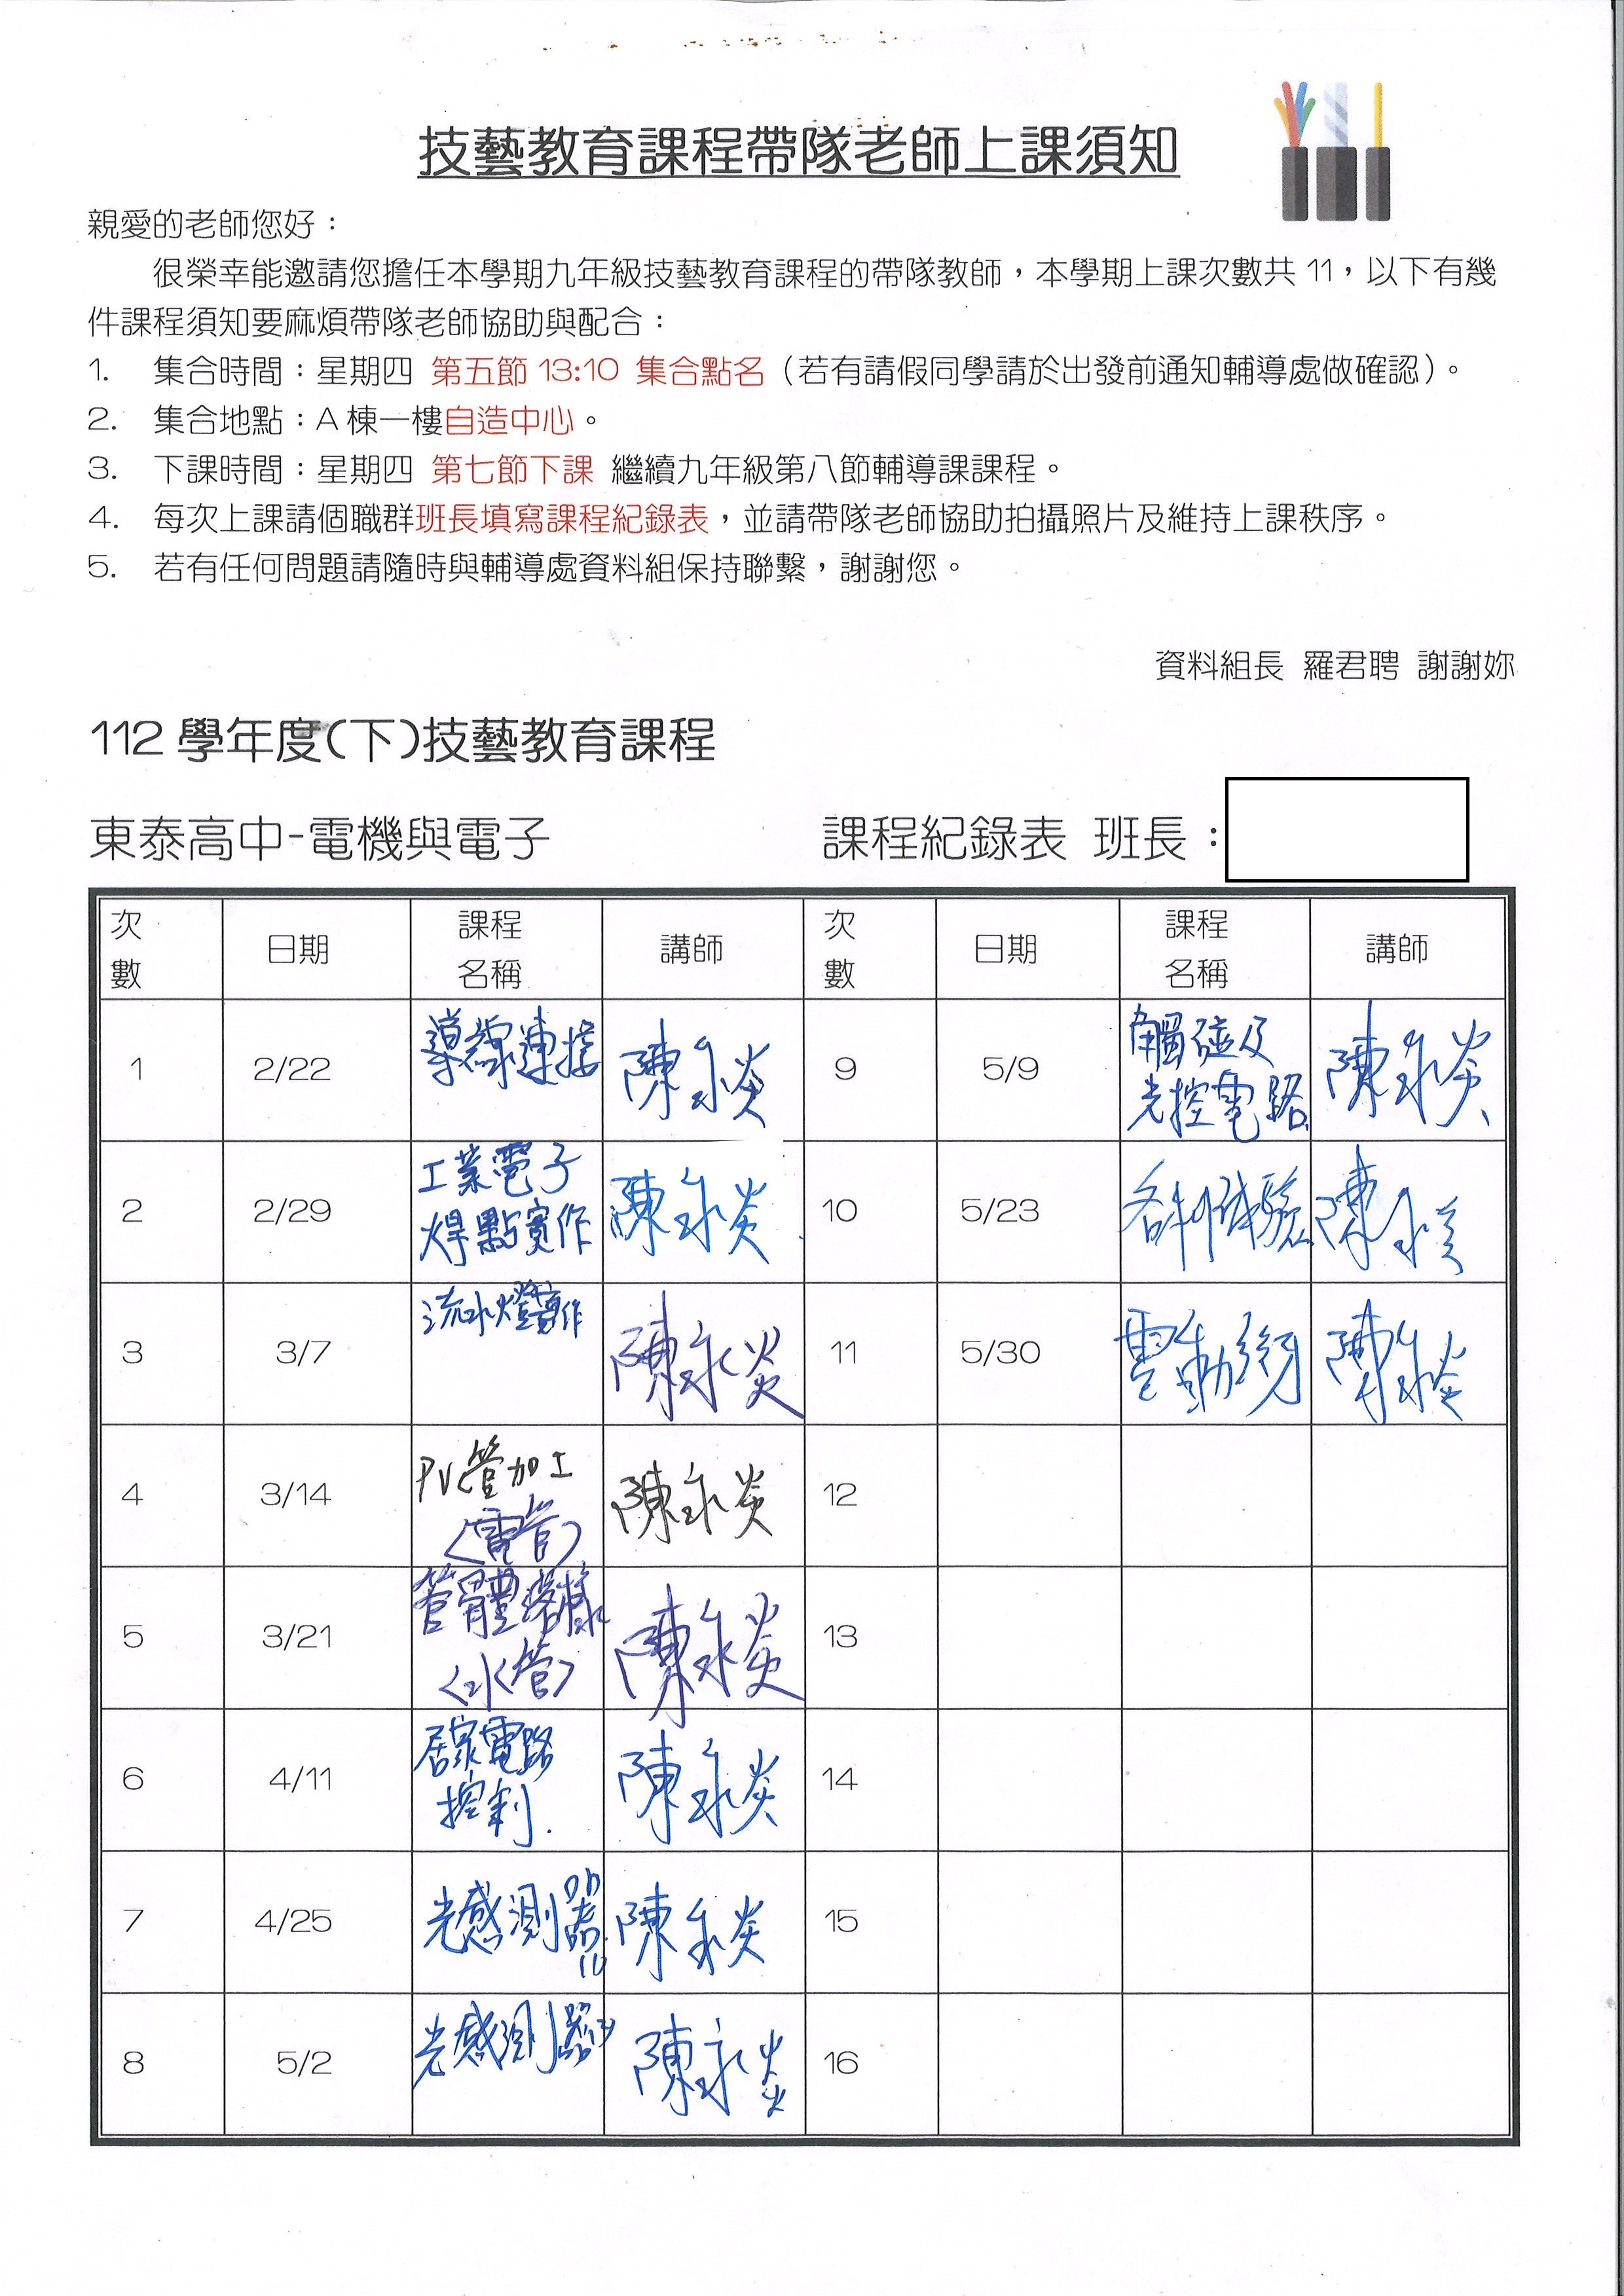 技藝教育課程帶隊老師上課須知
親愛的老師您好：
很榮幸能邀請您擔任本學期九年級技藝教育課程的帶隊教師，本學期上課次數共 11，以下有幾
件課程須知要麻煩帶隊老師協助與配合：
1. 集合時間：星期四 第五節 13:10 集合點名（若有請假同學請於出發前通知輔導處做確認）。
2. 集合地點：A 棟一樓自造中心。
3. 下課時間：星期四 第七節下課 繼續九年級第八節輔導課課程。
4. 每次上課請個職群班長填寫課程紀錄表，並請帶隊老師協助拍攝照片及維持上課秩序。
5. 若有任何問題請隨時與輔導處資料組保持聯繫，謝謝您。
資料組長 羅君聘 謝謝妳
112 學年度(下)技藝教育課程
東泰高中-電機與電子 課程紀錄表 班長：
次數 日期 課程名稱 講師 次數 日期 課程名稱 講師
1 2/22 導線連接 陳永炎 9 5/9 觸碰及光控電路 陳永炎
2 2/29 工業電子焊點實作 陳永炎 10 5/23 體驗 陳永炎
3 3/7 流水燈實作 陳永炎 11 5/30 電動 陳永炎
4 3/14 PVC管加工(電管) 陳永炎 12
5 3/21 管體(水管) 陳永炎 13
6 4/11 居家電路控制. 陳永炎 14
7 4/25 光感測器 陳永炎 15
8 5/2 光感測器 陳永炎 16